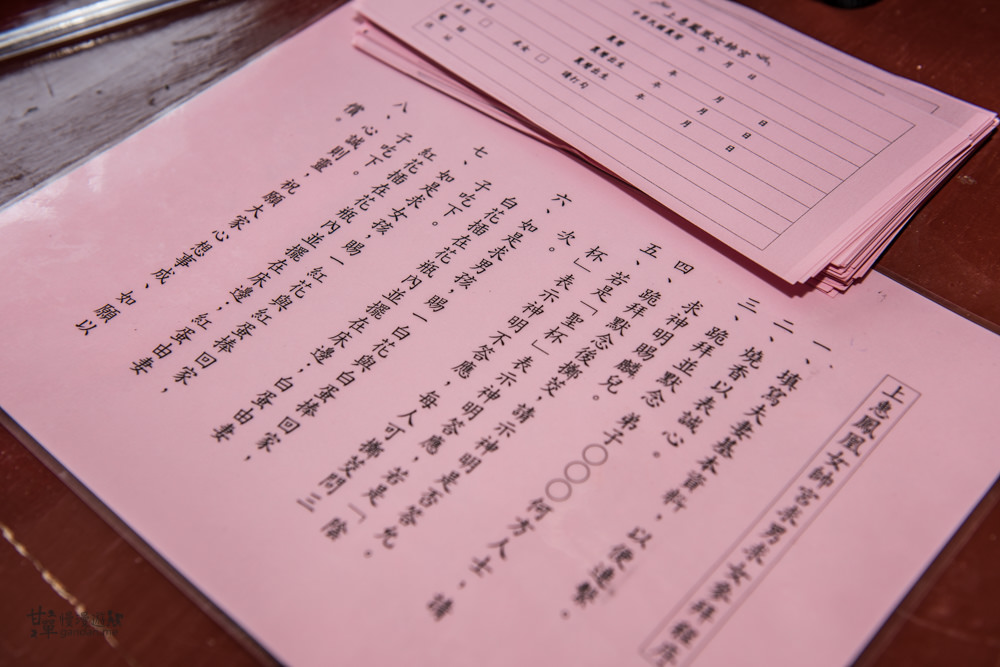 上惠鳳凰女帥宮求男求女參拜程序
一、填寫夫妻基本資料，以便連繫。
二、燒香以表誠心。
三、跪拜並默念。弟子○○○何方人士，請
求神明賜麟兒。
四、跪拜默念後擲筊，請示神明是否答允。
五、若是「聖杯」表示神明答應，若是「陰
杯」表示神明不答應，每人可擲筊問三
次。
六、如是求男孩，賜一白花與白蛋捧回家，
白花插在花瓶內並擺在床邊；白蛋由妻
子吃下。
七、如是求女孩，賜一紅花與紅蛋捧回家，
紅花插在花瓶內並擺在床邊；紅蛋由妻
子吃下。
八、心誠則靈，祝願大家心想事成、如願以
償。
上惠鳳凰女帥宮
年 月 日
年 月 日
年 月 日
求女□ 請打勾
月 日